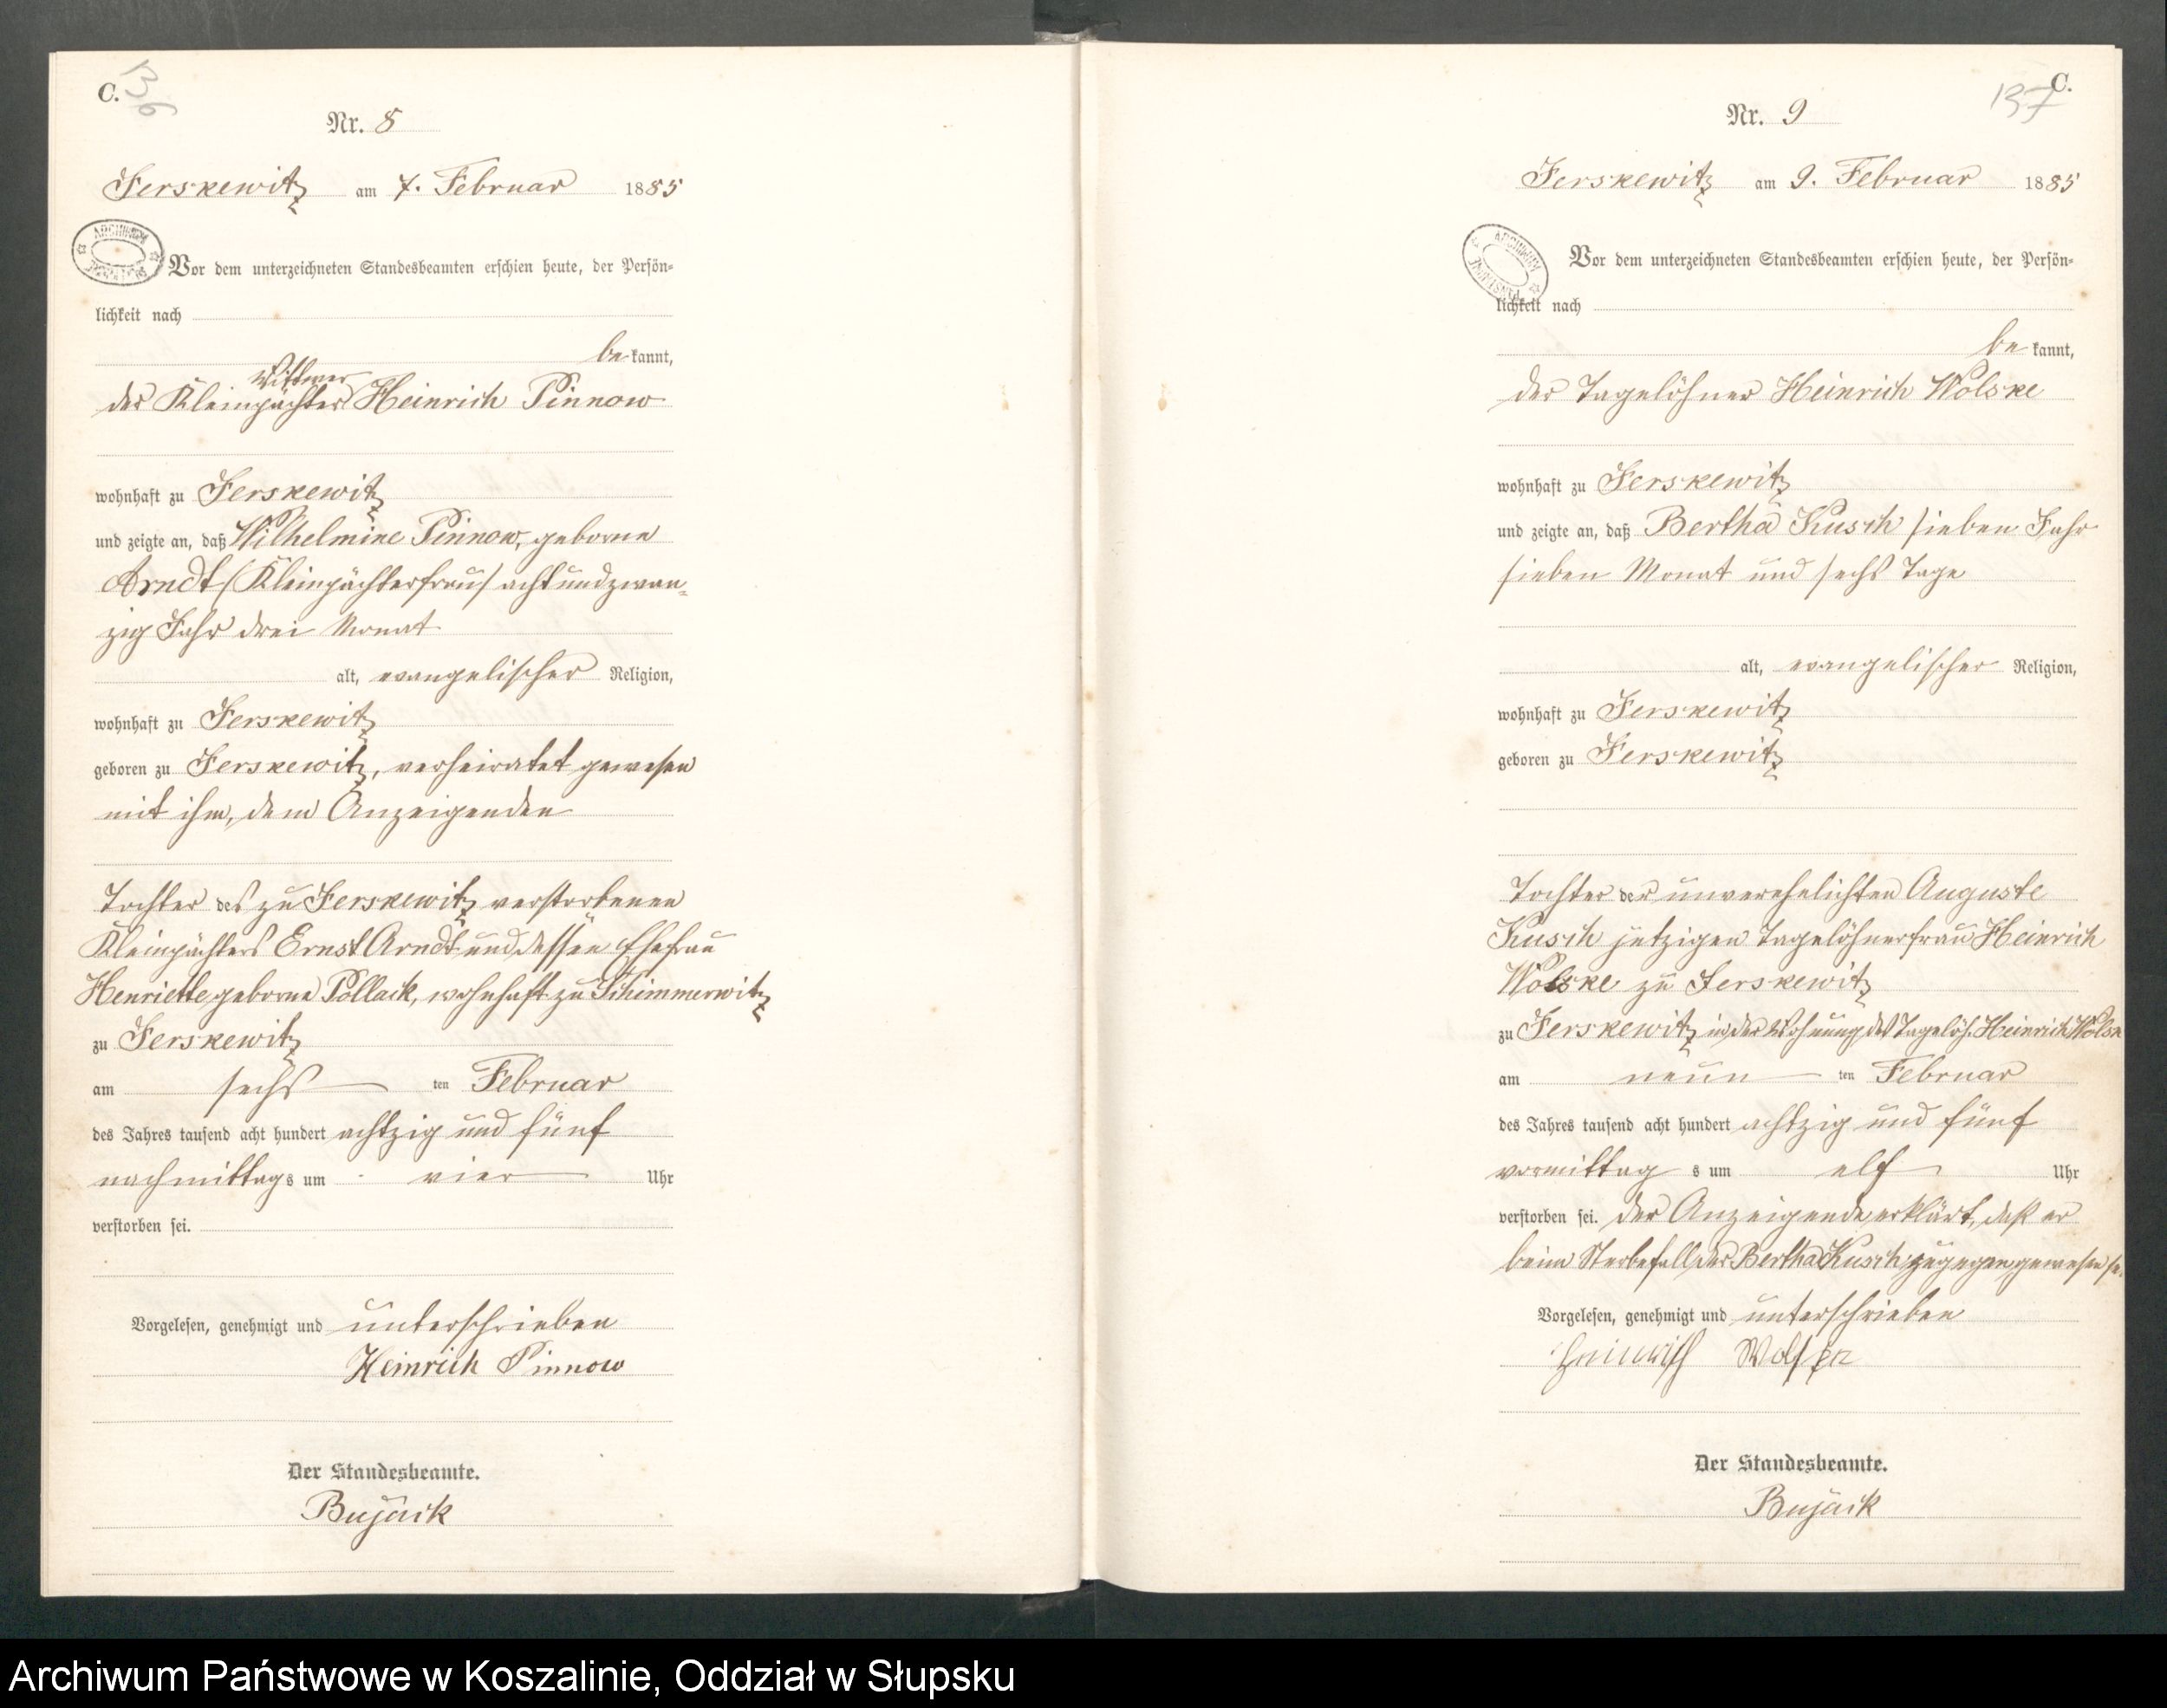 C.
136
Nr. 8
Jerskewitz am 7. Februar 1885
Vor dem unterzeichneten Standesbeamten erschien heute, der Persön-
lichkeit nach
be kannt,
Wittwer
der Kleinpächter Heinrich Pinnow
wohnhaft zu Jerskewitz
und zeigte an, daß Wilhelmine Pinnow, geborne
Arndt (Kleinpächterfrau) achtundzwan-
zig Jahr drei Monat
alt, evangelischer Religion,
wohnhaft zu Jerskewitz
geboren zu Jerskewitz, verheiratet gewesen
mit ihm, dem Anzeigenden
Tochter des zu Jerskewitz verstorbenen
Kleinpächters Ernst Arndt und dessen Ehefrau
Henriette geborne Pollack, wohnhaft zu Schimmerwitz
zu Jerskewitz
am sechs ten Februar
des Jahres tausend acht hundert achtzig und fünf
nachmittags um vier Uhr
verstorben sei.
Vorgelesen, genehmigt und unterschrieben
Heinrich Pinnow
Der Standesbeamte.
Bujack
C.
137
Nr. 9
Jerskewitz am 9. Februar 1885
ARCHIWUM
Vor dem unterzeichneten Standesbeamten erschien heute, der Persön-
lichkeit nach
be kannt,
der Tagelöhner Heinrich Wolske
wohnhaft zu Jerskewitz
und zeigte an, daß Bertha Kusch sieben Jahr
sieben Monat und sechs Tage
alt, evangelischer Religion,
wohnhaft zu Jerskewitz
geboren zu Jerskewitz
Tochter der unverehelichten Auguste
Kusch jetzigen Tagelöhnerfrau Heinrich
Wolske zu Jerskewitz
zu Jerskewitz in der Wohnung des Tagelöh. Heinrich Wolske
am neun ten Februar
des Jahres tausend acht hundert achtzig und fünf
vormittag s um elf Uhr
verstorben sei. Der Anzeigende erklärt, daß er
beim Sterbefall der Bertha Kusch zugegen gewesen sei.
Vorgelesen, genehmigt und unterschrieben
Heinrich
Der Standesbeamte.
Bujack
Archiwum Państwowe w Koszalinie, Oddział w Słupsku